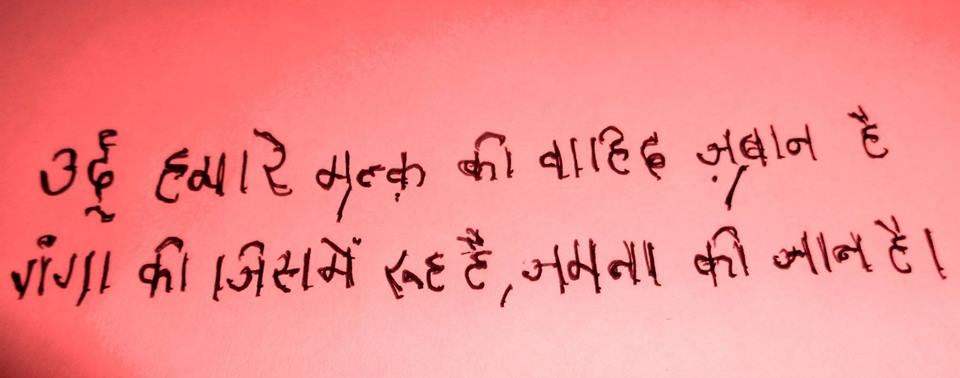 उर्दू हमारे मुल्क की वाहिद ज़ुबान है
गंगा की जिसमें रूह है, जमना की जान है।